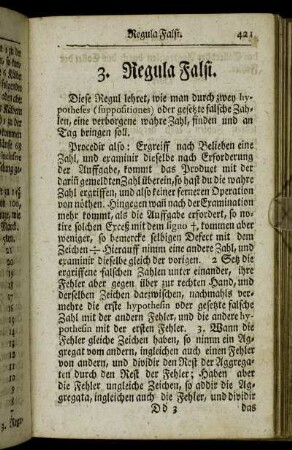 Regula Falsi. 421
3. Regula Falsi.
Diese Regul lehret, wie man durch zwey hy-
potheses (suppositiones) oder gesetzte falsche Zah-
len, eine verborgene wahre Zahl, finden und an
Tag bringen soll.
Procedir also: Ergreiff nach Belieben eine
Zahl, und examinir dieselbe nach Erforderung
der Auffgabe, kommt das Product mit der
darin̄ gemeldten Zahl überein, so hast du die wahre
Zahl ergriffen, und also keiner fernern Operation
von nöthen. Hingegen wañ nach der Examination
mehr kommt, als die Auffgabe erfordert, so no-
tire solchen Excess mit dem signo †, kommen aber
weniger, so bemercke selbigen Defect mit dem
Zeichen ÷. Hierauff nimm eine andere Zahl, und
examinir dieselbe gleich der vorigen. 2 Setz die
ergriffene falschen Zahlen unter einander, ihre
Fehler aber gegen über zur rechten Hand, und
derselben Zeichen darzwischen, nachmahls ver-
mehre die erste hypothesin oder gesetzte falsche
Zahl mit der andern Fehler, und die andere hy-
pothesin mit der ersten Fehler. 3. Wann die
Fehler gleiche Zeichen haben, so nimm ein Ag-
gregat vom andern, ingleichen auch einen Fehler
von andern, und dividir den Rest der Aggrega-
ten durch den Rest der Fehler; Haben aber
die Fehler ungleiche Zeichen, so addir die Ag-
gregata, ingleichen auch die Fehler, und dividir
Dd 3 das